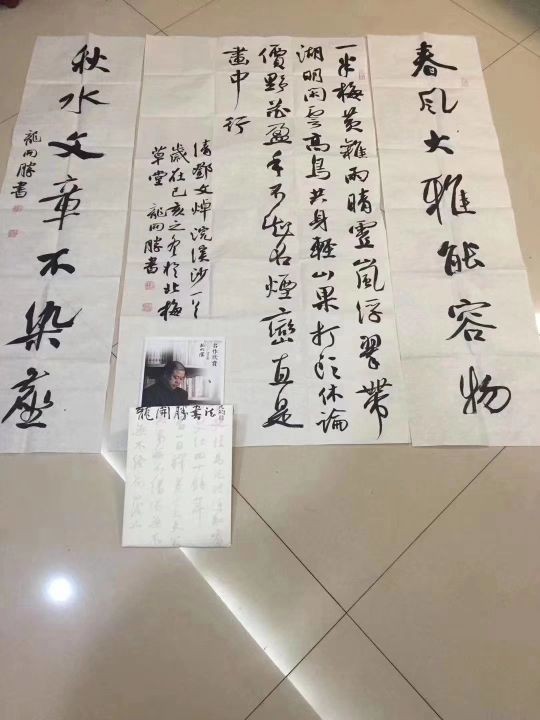 春风大雅能容物
一半梅黄雜雨晴虛嵐浮翠帶
湖明闲雲高鳥共身輕山果打頭休論
價野花盈手不知名煙巒直是
畫中行
清鄧文焯浣溪沙一首
歲在己亥之冬於北梅
草堂 龍開勝書
秋水文章不染塵
龍開勝書
名作欣賞
龍開勝書法